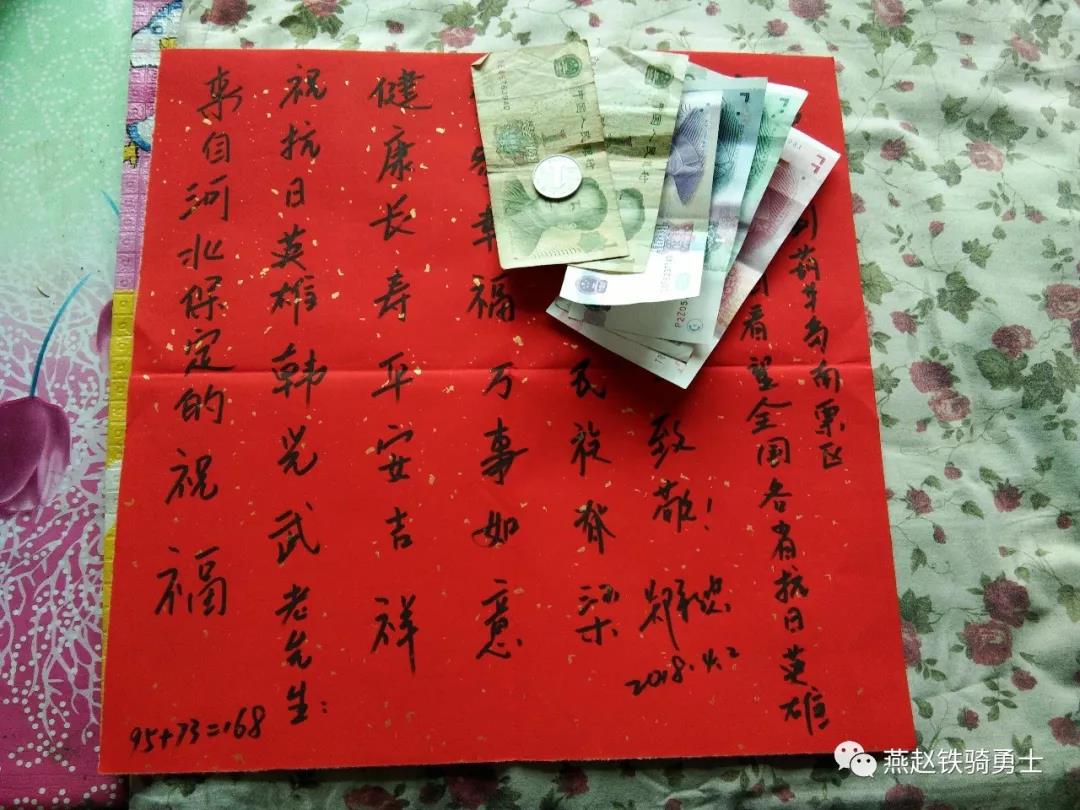 来自河北保定的祝福
祝抗日英雄韩光武老先生:
健康长寿平安吉祥
幸福万事如意
民族脊梁
致敬!
2018.4.2
看望全国各省抗日英雄
到葫芦岛南票区
95+73=168
中国人民
中国人民
P2Z05
燕赵铁骑勇士